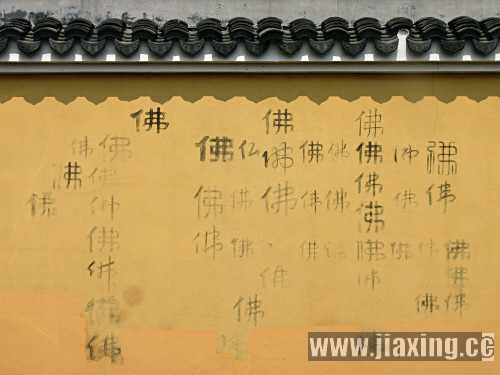 佛 佛 佛
佛 佛 佛 仏 佛 佛 佛 佛 佛 佛
佛 佛 佛
佛 佛 佛 佛 佛 佛 佛 佛 佛 佛
佛 佛 佛 佛 佛 佛 佛 佛 佛
佛 佛 佛 佛
佛 佛 佛 佛
佛
www.jiaxing.cc